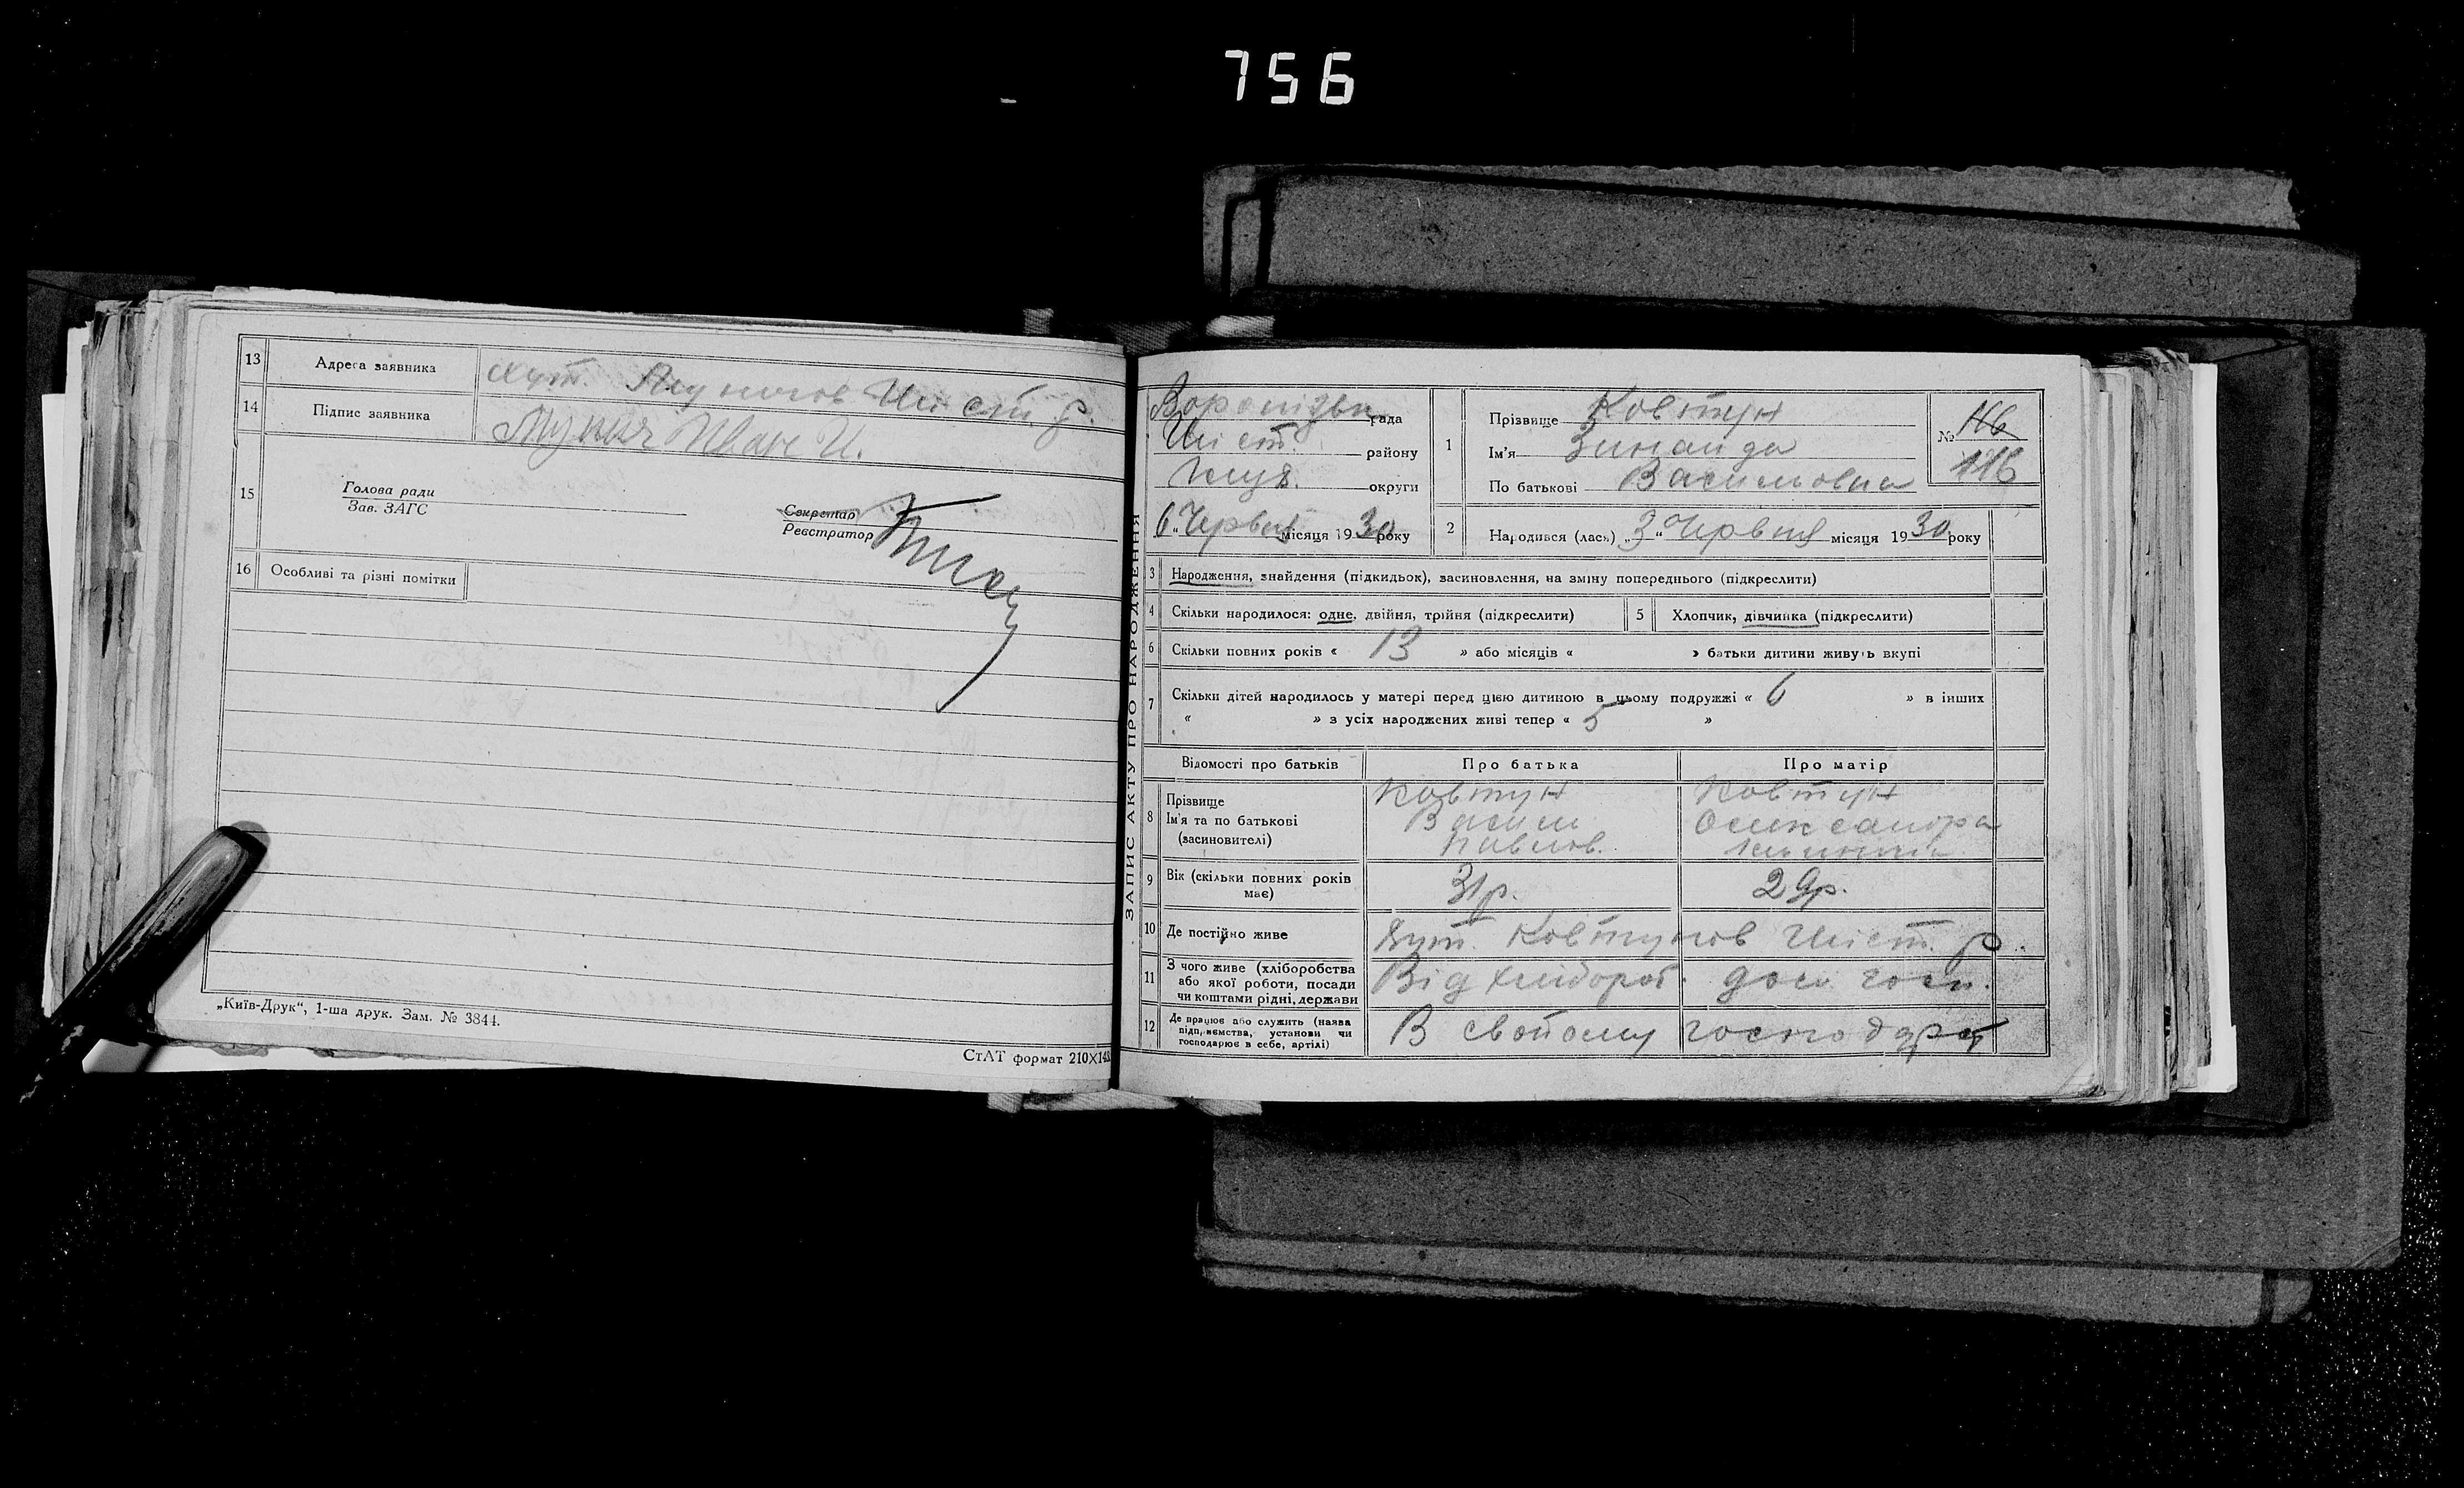 756
13 Адреса заявника хут.
14 Підпис заявника Іван И.
15 Голова ради
Зав. ЗАГС
Секретар
Реєстратор
16 Особливі та різні помітки
„Київ-Друк“, 1-ша друк. Зам. № 3844.
СтАТ формат 210X143
ЗАПИС АКТУ ПРО НАРОДЖЕННЯ
рада
району
округи
6 „ Червня місяця 1930 року
1 Прізвище Ковтун
Ім'я Зинаида
По батькові Васильовна
№ 116
116
2 Народився (лась) „3“ Червня місяця 1930 року
3 Народження, знайдення (підкидьок), засиновлення, на зміну попереднього (підкреслити)
4 Скільки народилося: одне, двійня, трійня (підкреслити)
5 Хлопчик, дівчинка (підкреслити)
6 Скільки повних років « 13 » або місяців « » батьки дитини живуть вкупі
7 Скільки дітей народилось у матері перед цією дитиною в цьому подружжі « 6 » в інших
« » з усіх народжених живі тепер « 5 »
Відомості про батьків Про батька Про матір
8 Прізвище Ковтун Ковтун
Ім'я та по батькові Василь Олександра
(засновителі) Павлов.
9 Вік (скільки повних років має) 31р. 29р.
10 Де постійно живе Хут. Ковтунов р.
11 З чого живе (хліборобства
або якої роботи, посади
чи коштами рідні, держави Від хлібороб. дом. госп.
12 Де працює або служить (назва
підприємства, установи чи
господарює в себе, артілі) В свойому господарст